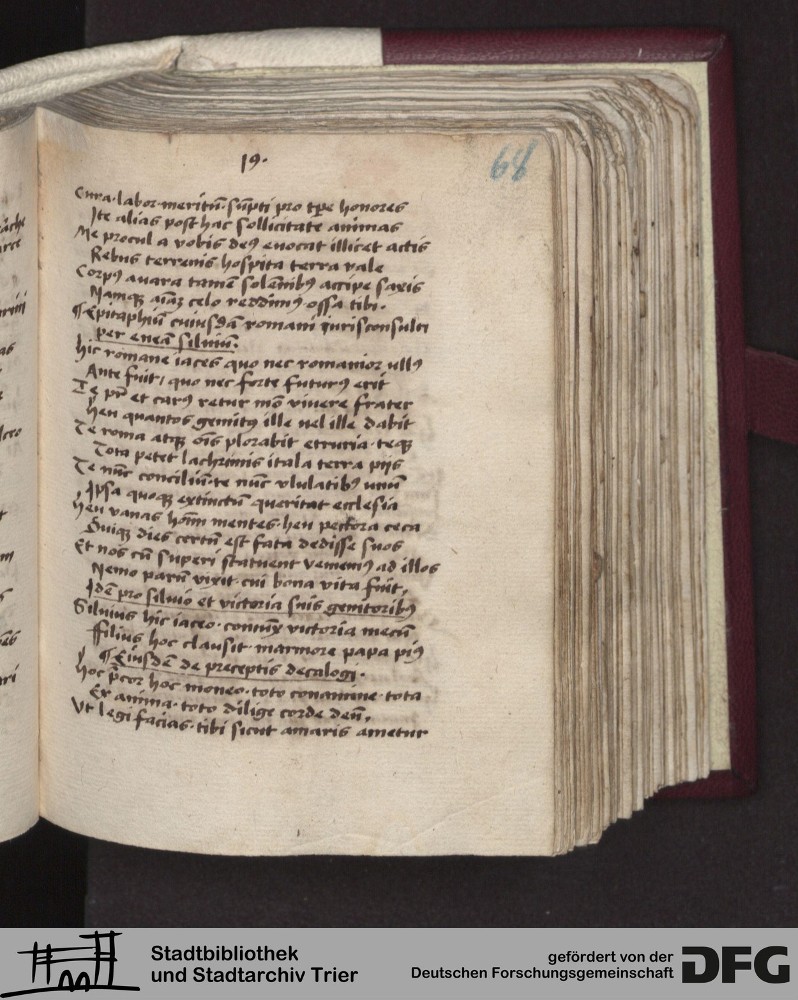 19.
68
Cura labor meritū sūpti pro tpe honores
Ite alias posthac sollicitate animas
Me procul a vobis deꝰ euocat illicet actis
Rebus terrenis hospita terra vale
Corpꝰ auara tamē solēnibꝰ accipe saxis
Namqꝫ aīaꝫ celo reddimꝰ ossa tibi.
¶ Epitaphiū cuiusdā romani iurisconsulti
per eneā siluiū.
hic romane iaces quo nec romanior vllꝰ
Ante fuit / quo nec forte futurꝰ erit
Te pr̄ et carꝰ retur mō viuere frater
heu quantos gemitꝰ ille uel ille dabit
Te roma atqꝫ oīs plorabit etruria teqꝫ
Tota petet lachrimis itala terra piis
Te nūc conciliū te nūc vlulatibꝰ unū
Ipsa quoqꝫ extinctū queritat ecclesia
heu vanas hoīm mentes heu pectora ceca
Quiqꝫ dies certū est fata dedisse suos
Et nos cū superi statuent veniemꝰ ad illos
Nemo parū vixit cui bona vita fuit,
Idē pro siluio et victoria suis genitoribꝰ
Siluius hic iaceo coniunx victoria mecū
Filius hoc clausit marmore papa piꝰ
¶ Eiusdē de preceptis decalogi.
hoc p̄cor hoc moneo toto conamine tota
Ex anima toto dilige corde deū,
Vt legi facias tibi sicut amaris ametur
Stadtbibliothek
und Stadtarchiv Trier
gefördert von der
Deutschen Forschungsgemeinschaft
DFG